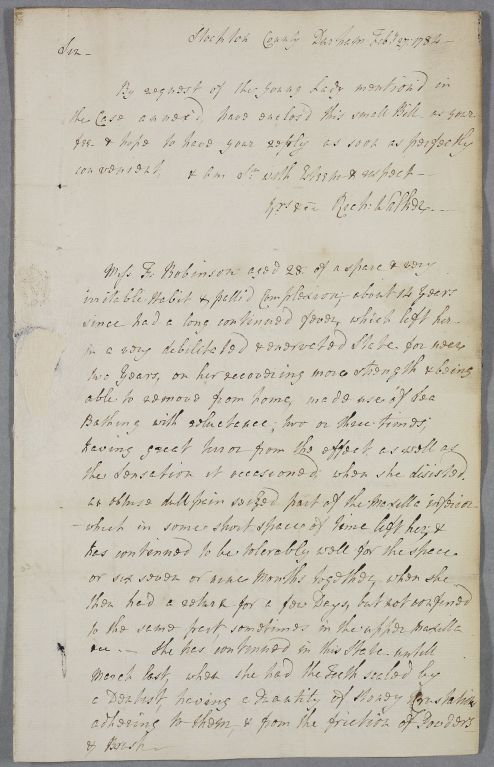 Stockton County Durham Feb.y 27: 1784
Sir
By request of the young Lady mention'd in
the Case annex'd, have enclos'd this small Bill as your
fee & hope to have your reply as soon as perfectly
convenient & am Sr. with Esteem & respect
Yrs &ca Rich: Walker
Miss F. Robinson aged 28 of a spare & very
irritable Habit & pallid Complexion, about 14 Years
since had a long continued fever, which left her
in a very debilitated & enervated State for near
two Years, on her recovering more strength & being
able to remove from home, made use of Sea
Bathing with reluctance, two or three times,
having great terror from the effect as well as
the sensation it occasioned, when she desisted,
an obtuse dull pain seized part of the Maxilla inferior
which in some short space of time left her, &
has continued to be tolerably well for the space
or six seven or nine Months together, when she
then had a return for a few Days, but not confined
to the same part, sometimes in the upper Maxilla
&c. She has continued in this State untill
March last, when she had the Teeth scaled by
a Dentist, having a Quantity of stoney
adhering to them, & from the friction of Powders
& Brush